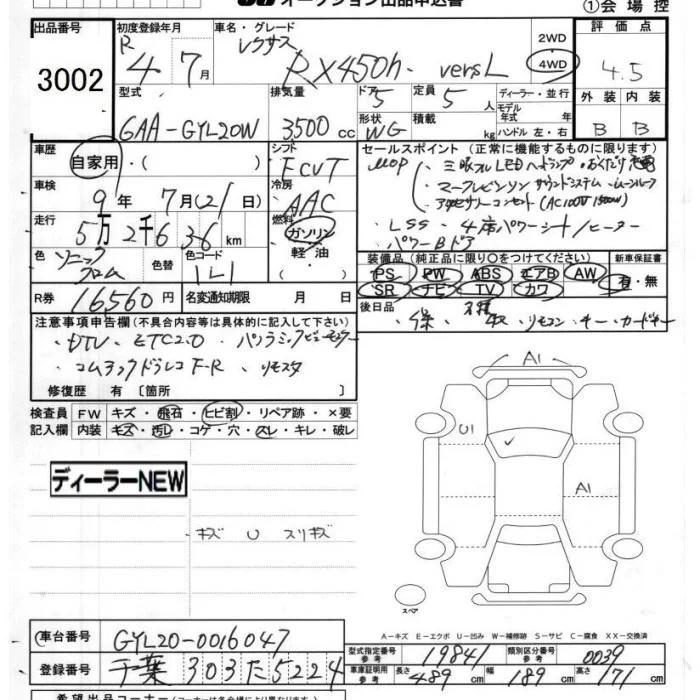 オークション出品申込書
①会場控
出品番号 初度登録年月 車名・グレード 評価点
3002 R 4年 7月 レクサス RX450h. versL 2WD 4WD 4.5
型式 排気量 ドア 定員 ディーラー・並行 外装 内装
GAA-GYL20W 3500cc 5 5人 モデル年式 年 B B
形状 積載
WG kg ハンドル 左・右
車歴 シフト セールスポイント (正常に機能するものに限ります)
自家用・( ) FCVT MOP
・三眼フルLEDヘッドランプ・おくだけ充電
車検 冷房 ・マークレビンソン サウンドシステム ・ムーンルーフ
9年 7月(21日) AAC ・アクセサリーコンセント(AC100V 1500W)
走行 燃料 ・LSS ・4席パワーシート/ヒーター
5万2千636km ガソリン ・パワーBドア
軽油
色 色替 色コード
ソニッククロム 1L1 ・( )
装備品 (純正品に限り○をつけてください) 新車保証書
PS PW ABS エアB AW 有・無
SR ナビ TV カワ
R券 16560円 名変通知期限 月 日
後日品
・保 ・取 ・リモコン ・キー ・カードキー
注意事項申告欄 (不具合内容等は具体的に記入して下さい)
・DTV ・ETC2.0 ・パノラミックビューモニター
・コムテックドラレコF-R ・リモスタ
修復歴 有 [箇所 ]
検査員 FW キズ・飛石・ヒビ割・リペア跡・×要
記入欄 内装 キズ・汚レ・コゲ・穴・スレ・キレ・破レ
A1
U1
A1
ディーラーNEW
キズ U スリキズ
スペア
A−キズ E−エクボ U−凹み W−補修跡 S−サビ C−腐食 XX−交換済
車台番号 GYL20-0016047
型式指定番号 参考 19841 類別区分番号 参考 0039
登録番号 千葉 303 た 5224
車庫証明用 参考 長さ 489cm 幅 189cm 高さ 171cm
希望出品コーナー